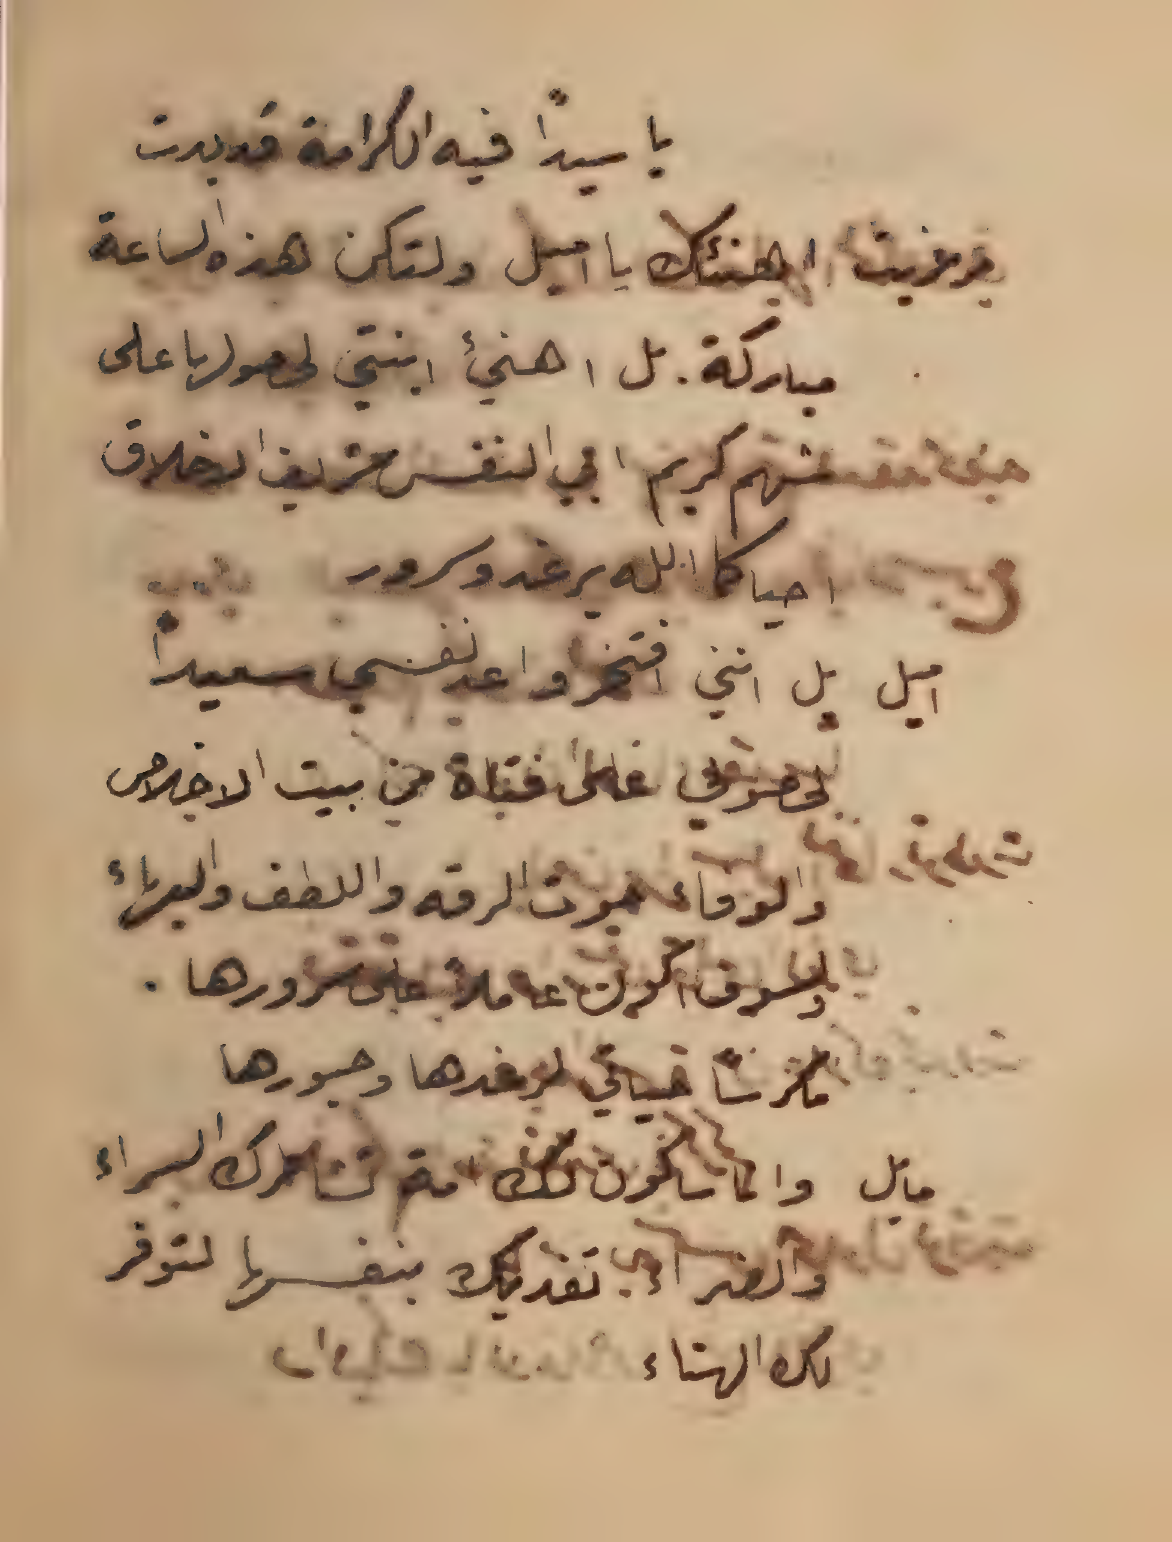 يا سيداً فيه الكرامة قد بدت
اهنئك يا اميل ولتكن هذه الساعة
مباركة. بل اهنئ ابنتي لحصولها على
شهم كريم ابي النفس شريف الاخلاق
احياكما الله برغد وسرور
اميل بل انني افتخر واعد نفسي سعيداً
لحصولي على فتاة من بيت الاخلاص
والوفاء حوت الرقه واللطف والبهاء
ولسوف اكون عاملاً على سرورها .
مكرساً حياتي لرغدها وحبورها
وانها ستكون لك تشاطرك السراء
والضراء تفديك بنفسها لتوفر
لك الهناء